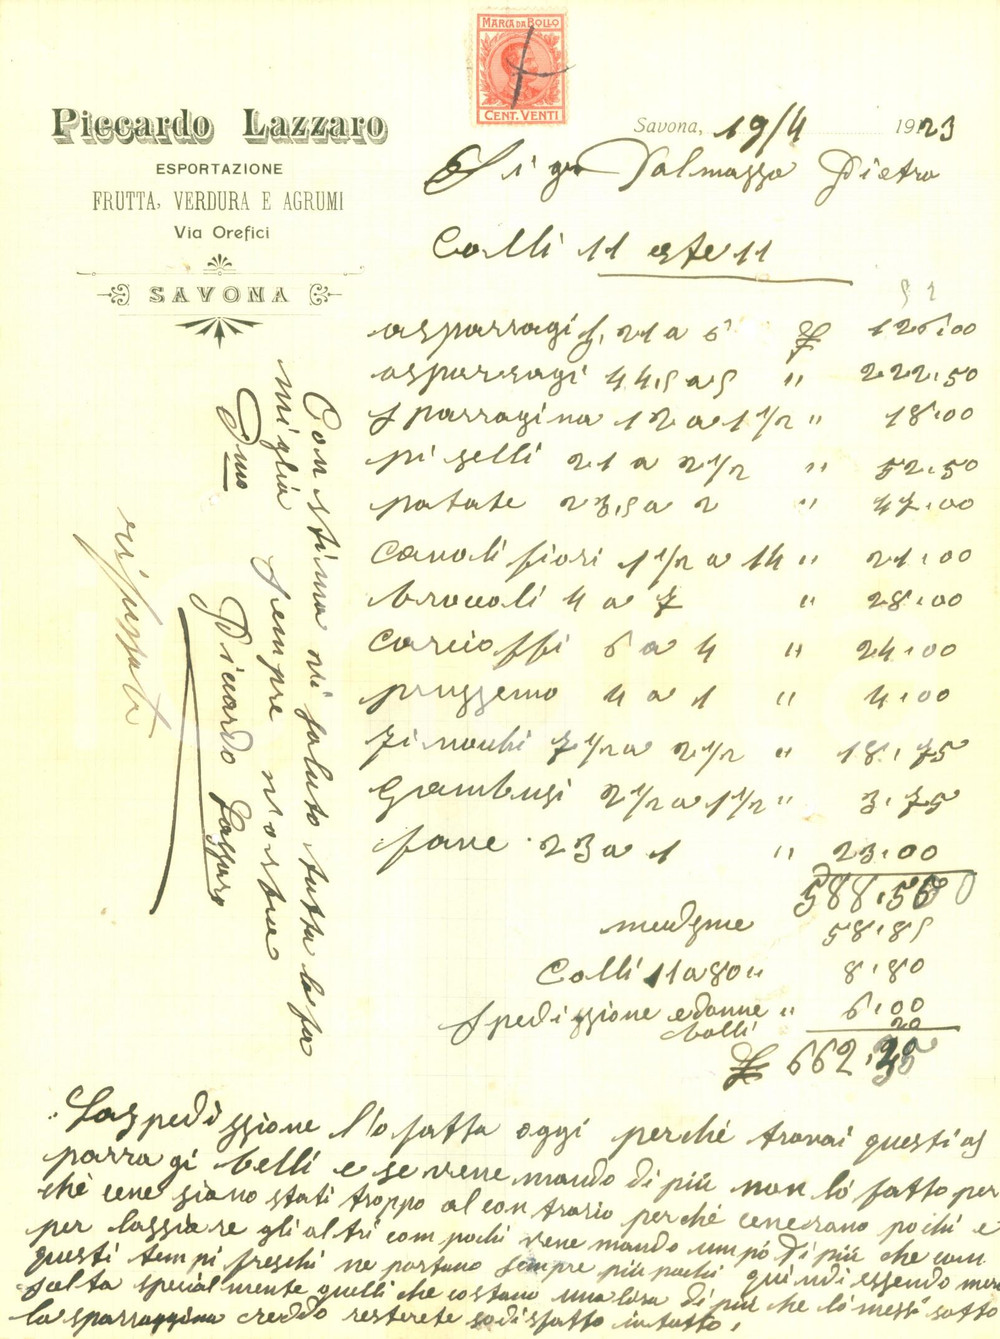 MARCA DA BOLLO
CENT. VENTI
Piccardo Lazzaro
ESPORTAZIONE
FRUTTA, VERDURA E AGRUMI
Via Orefici
SAVONA
Savona, 19/4 1923
Sigr Dalmazzo Pietro
Colli 11 este 11
asparragi 21 a 6 £ 126.00
asparragi 44,5 a 5 " 222.50
sparragina 12 a 1 1/2 " 18.00
piselli 21 a 2 1/2 " 52.50
patate 23,5 a 2 " 47.00
cavoli fiori 1 1/2 a 14 " 21.00
broccoli 4 a 7 " 28.00
carcioffi 6 a 4 " 24.00
pruzzemo 4 a 1 " 4.00
finocchi 7 1/2 a 2 1/2 " 18.75
Gambusi 2 1/2 a 1 1/2 " 3.75
fave 23 a 1 " 23.00
588.50
58.85
Colli 11 a 80 " 8.80
Spedizzione e donne " 6.00
bolli 20
£ 662.35
Con stima vi saluto tutta la fa
miglia sempre vostro
Dmo Piccardo Lazzaro
La spedizzione l'o fatta oggi perché trovai questi as
parragi belli e se vene mando di più non lò fatto per
chè cene siano stati troppo al contrario perché cenerano pochi e
per lassiare gli altri com pochi vene mando umpó di più che com
questi tempi freschi ne portano sempre più pochi quindi essendo mer
salta specialmente quelli che costano una lira di più che lò messi sotto
la sparraggina credo resterete sodisfatto in tutto,